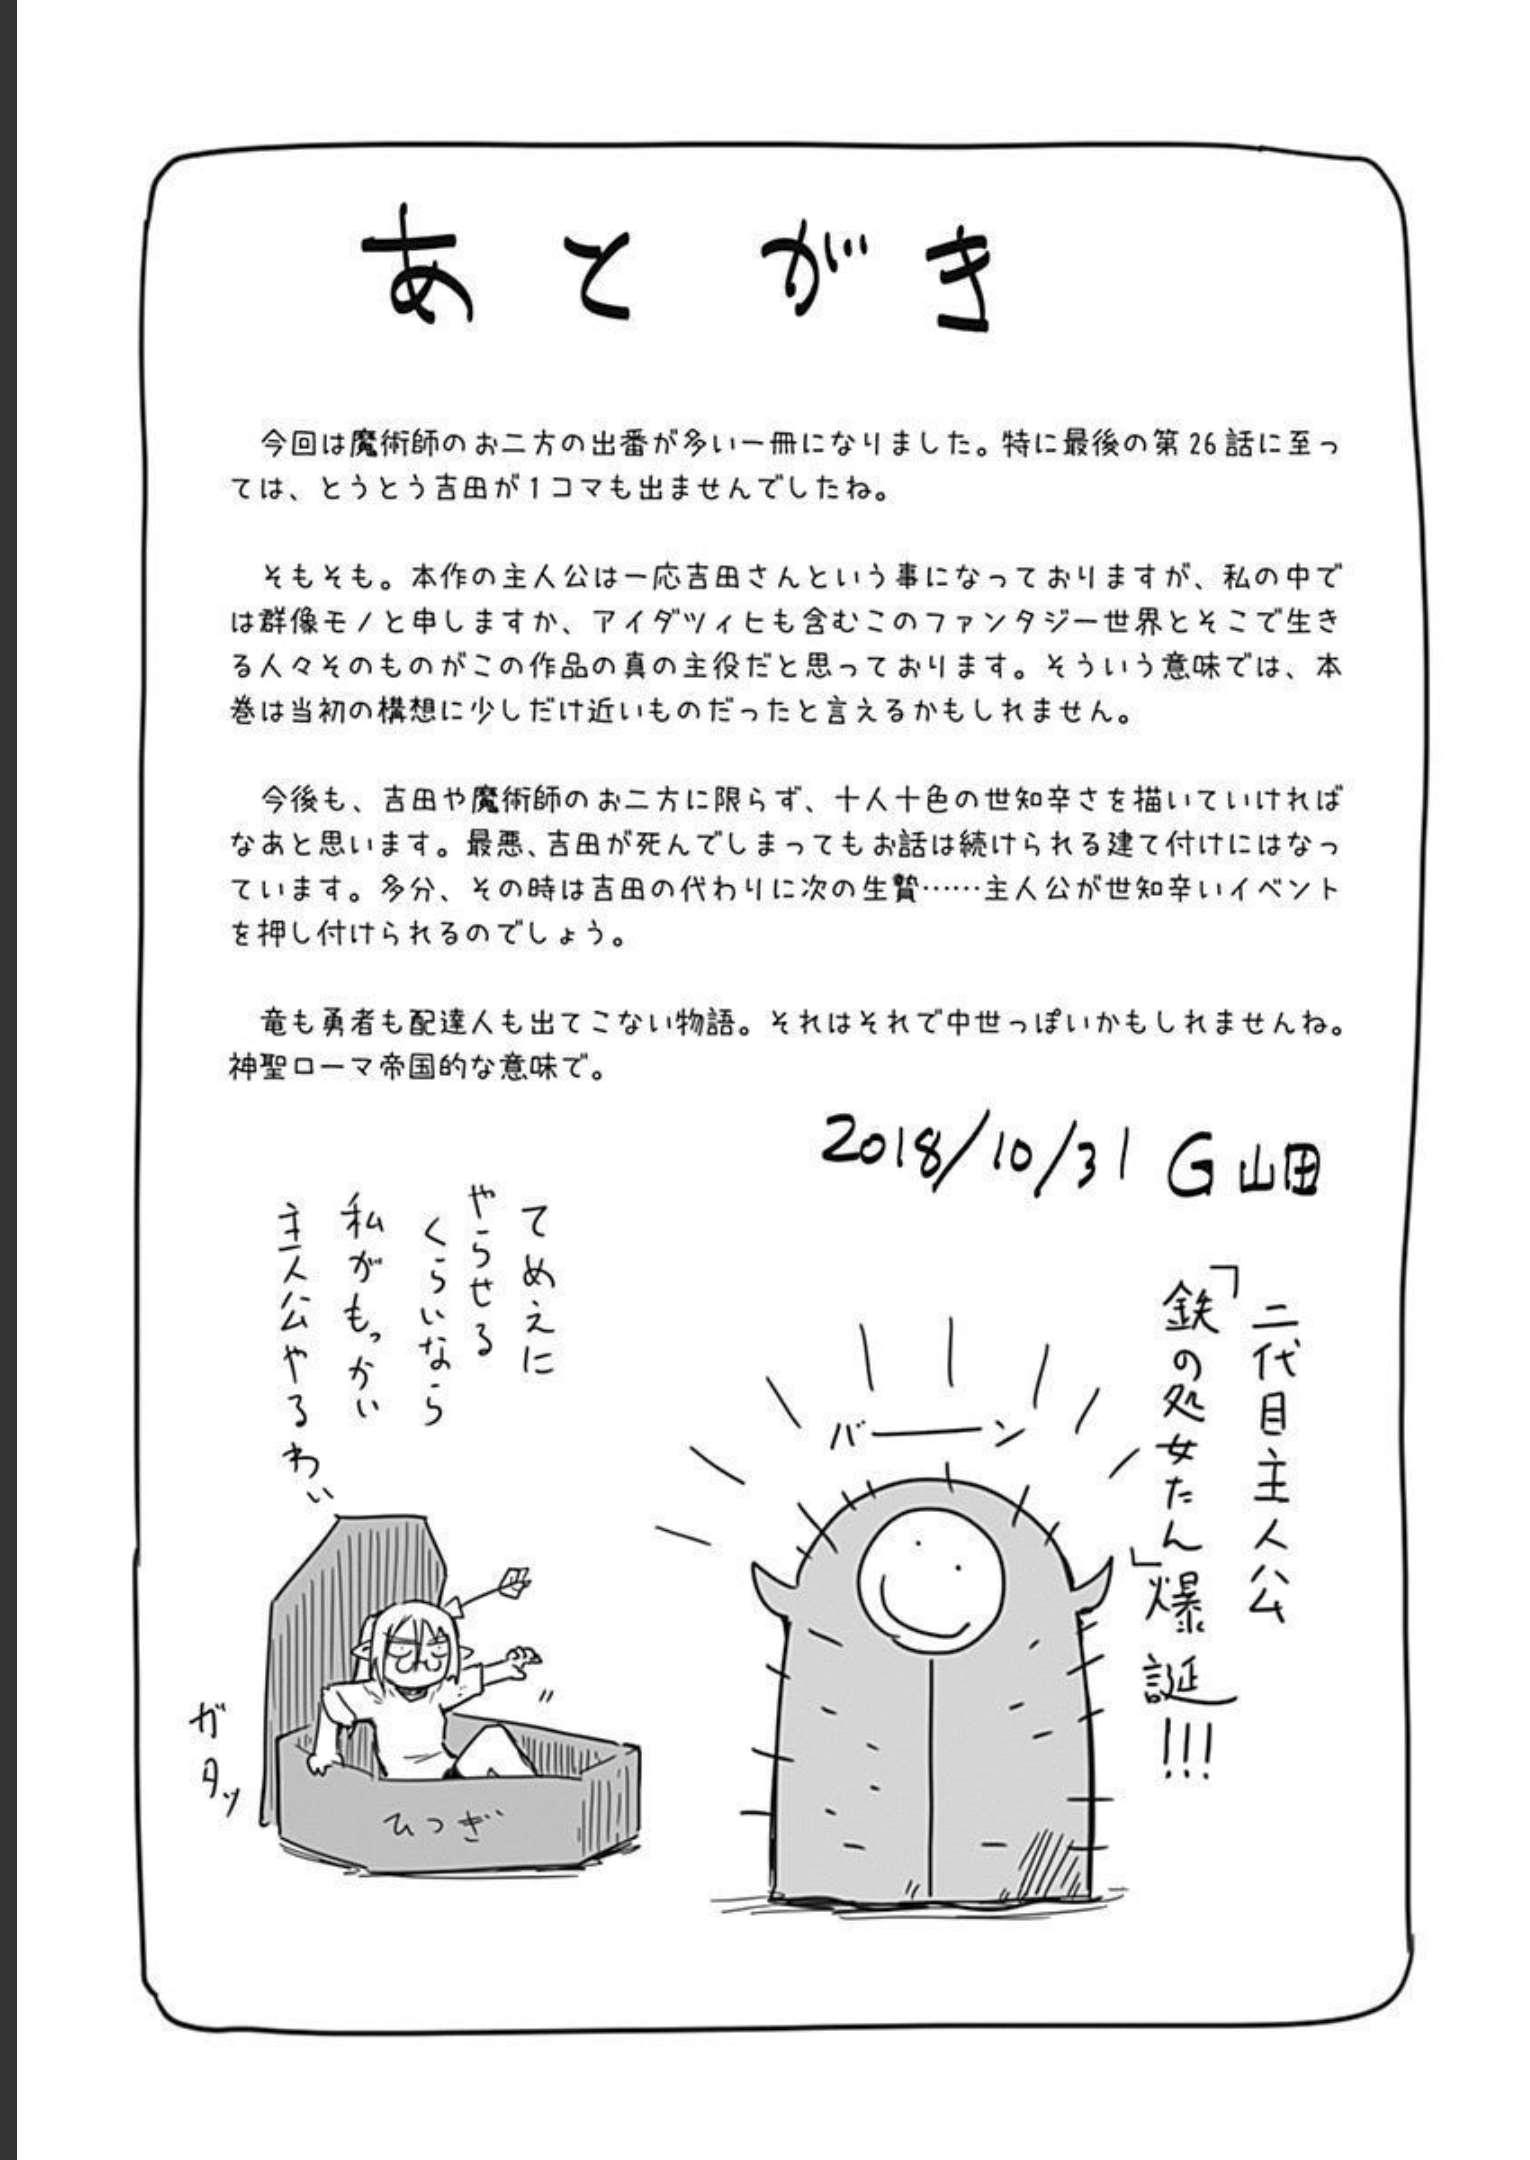 あとがき
今回は魔術師のお二方の出番が多い一冊になりました。特に最後の第26話に至っ
ては、とうとう吉田が1コマも出ませんでしたね。
そもそも。本作の主人公は一応吉田さんという事になっておりますが、私の中で
は群像モノと申しますか、アイダツィヒも含むこのファンタジー世界とそこで生き
る人々そのものがこの作品の真の主役だと思っております。そういう意味では、本
巻は当初の構想に少しだけ近いものだったと言えるかもしれません。
今後も、吉田や魔術師のお二方に限らず、十人十色の世知辛さを描いていければ
なあと思います。最悪、吉田が死んでしまってもお話は続けられる建て付けにはなっ
ています。多分、その時は吉田の代わりに次の生贄……主人公が世知辛いイベント
を押し付けられるのでしょう。
竜も勇者も配達人も出てこない物語。それはそれで中世っぽいかもしれませんね。
神聖ローマ帝国的な意味で。
2018/10/31 G山田
二代目主人公
「鉄の処女たん」爆誕!!!
バーン
てめえに
やらせる
くらいなら
私がもっかい
主人公やるわい
ガタッ
ひつぎ